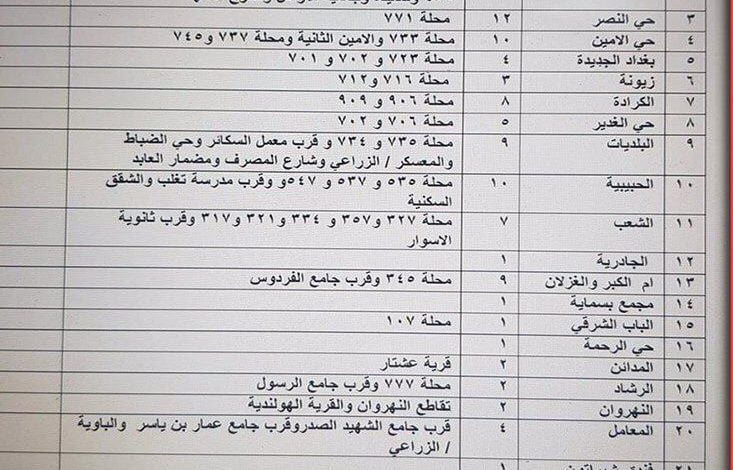 ٣ حي النصر ١٢ محلة ٧٧١
٤ حي الامين ١٠ محلة ٧٣٣ والامين الثانية ومحلة ٧٣٧ و٧٤٥
٥ بغداد الجديدة ٤ محلة ٧٢٣ و ٧٠٢ و ٧٠١
٦ زيونة ٣ محلة ٧١٦ و٧١٢
٧ الكرادة ٨ محلة ٩٠٦ و ٩٠٩
٨ حي الغدير ٥ محلة ٧٠٦ و ٧٠٢
٩ البلديات ٩ محلة ٧٣٥ و ٧٣٤ و قرب معمل السكائر وحي الضباط
والمعسكر / الزراعي وشارع المصرف ومضمار العابد
١٠ الحبيبية ١٠ محلة ٥٣٥ و ٥٣٧ و ٥٤٧و وقرب مدرسة تغلب والشقق
السكنية
١١ الشعب ٧ محلة ٣٢٧ و٣٥٧ و ٣٣٤ و٣٢١ و٣١٧ وقرب ثانوية
الاسوار
١٢ الجادرية ١
١٣ ام الكبر والغزلان ٩ محلة ٣٤٥ وقرب جامع الفردوس
١٤ مجمع بسماية ١
١٥ الباب الشرقي ١ محلة ١٠٧
١٦ حي الرحمة ١
١٧ المدائن ٢ قرية عشتار
١٨ الرشاد ٢ محلة ٧٧٧ وقرب جامع الرسول
١٩ النهروان ٢ تقاطع النهروان والقرية الهولندية
٢٠ المعامل ٤ قرب جامع الشهيد الصدروقرب جامع عمار بن ياسر والباوية
/ الزراعي
٢١ فندق شيراتون ١